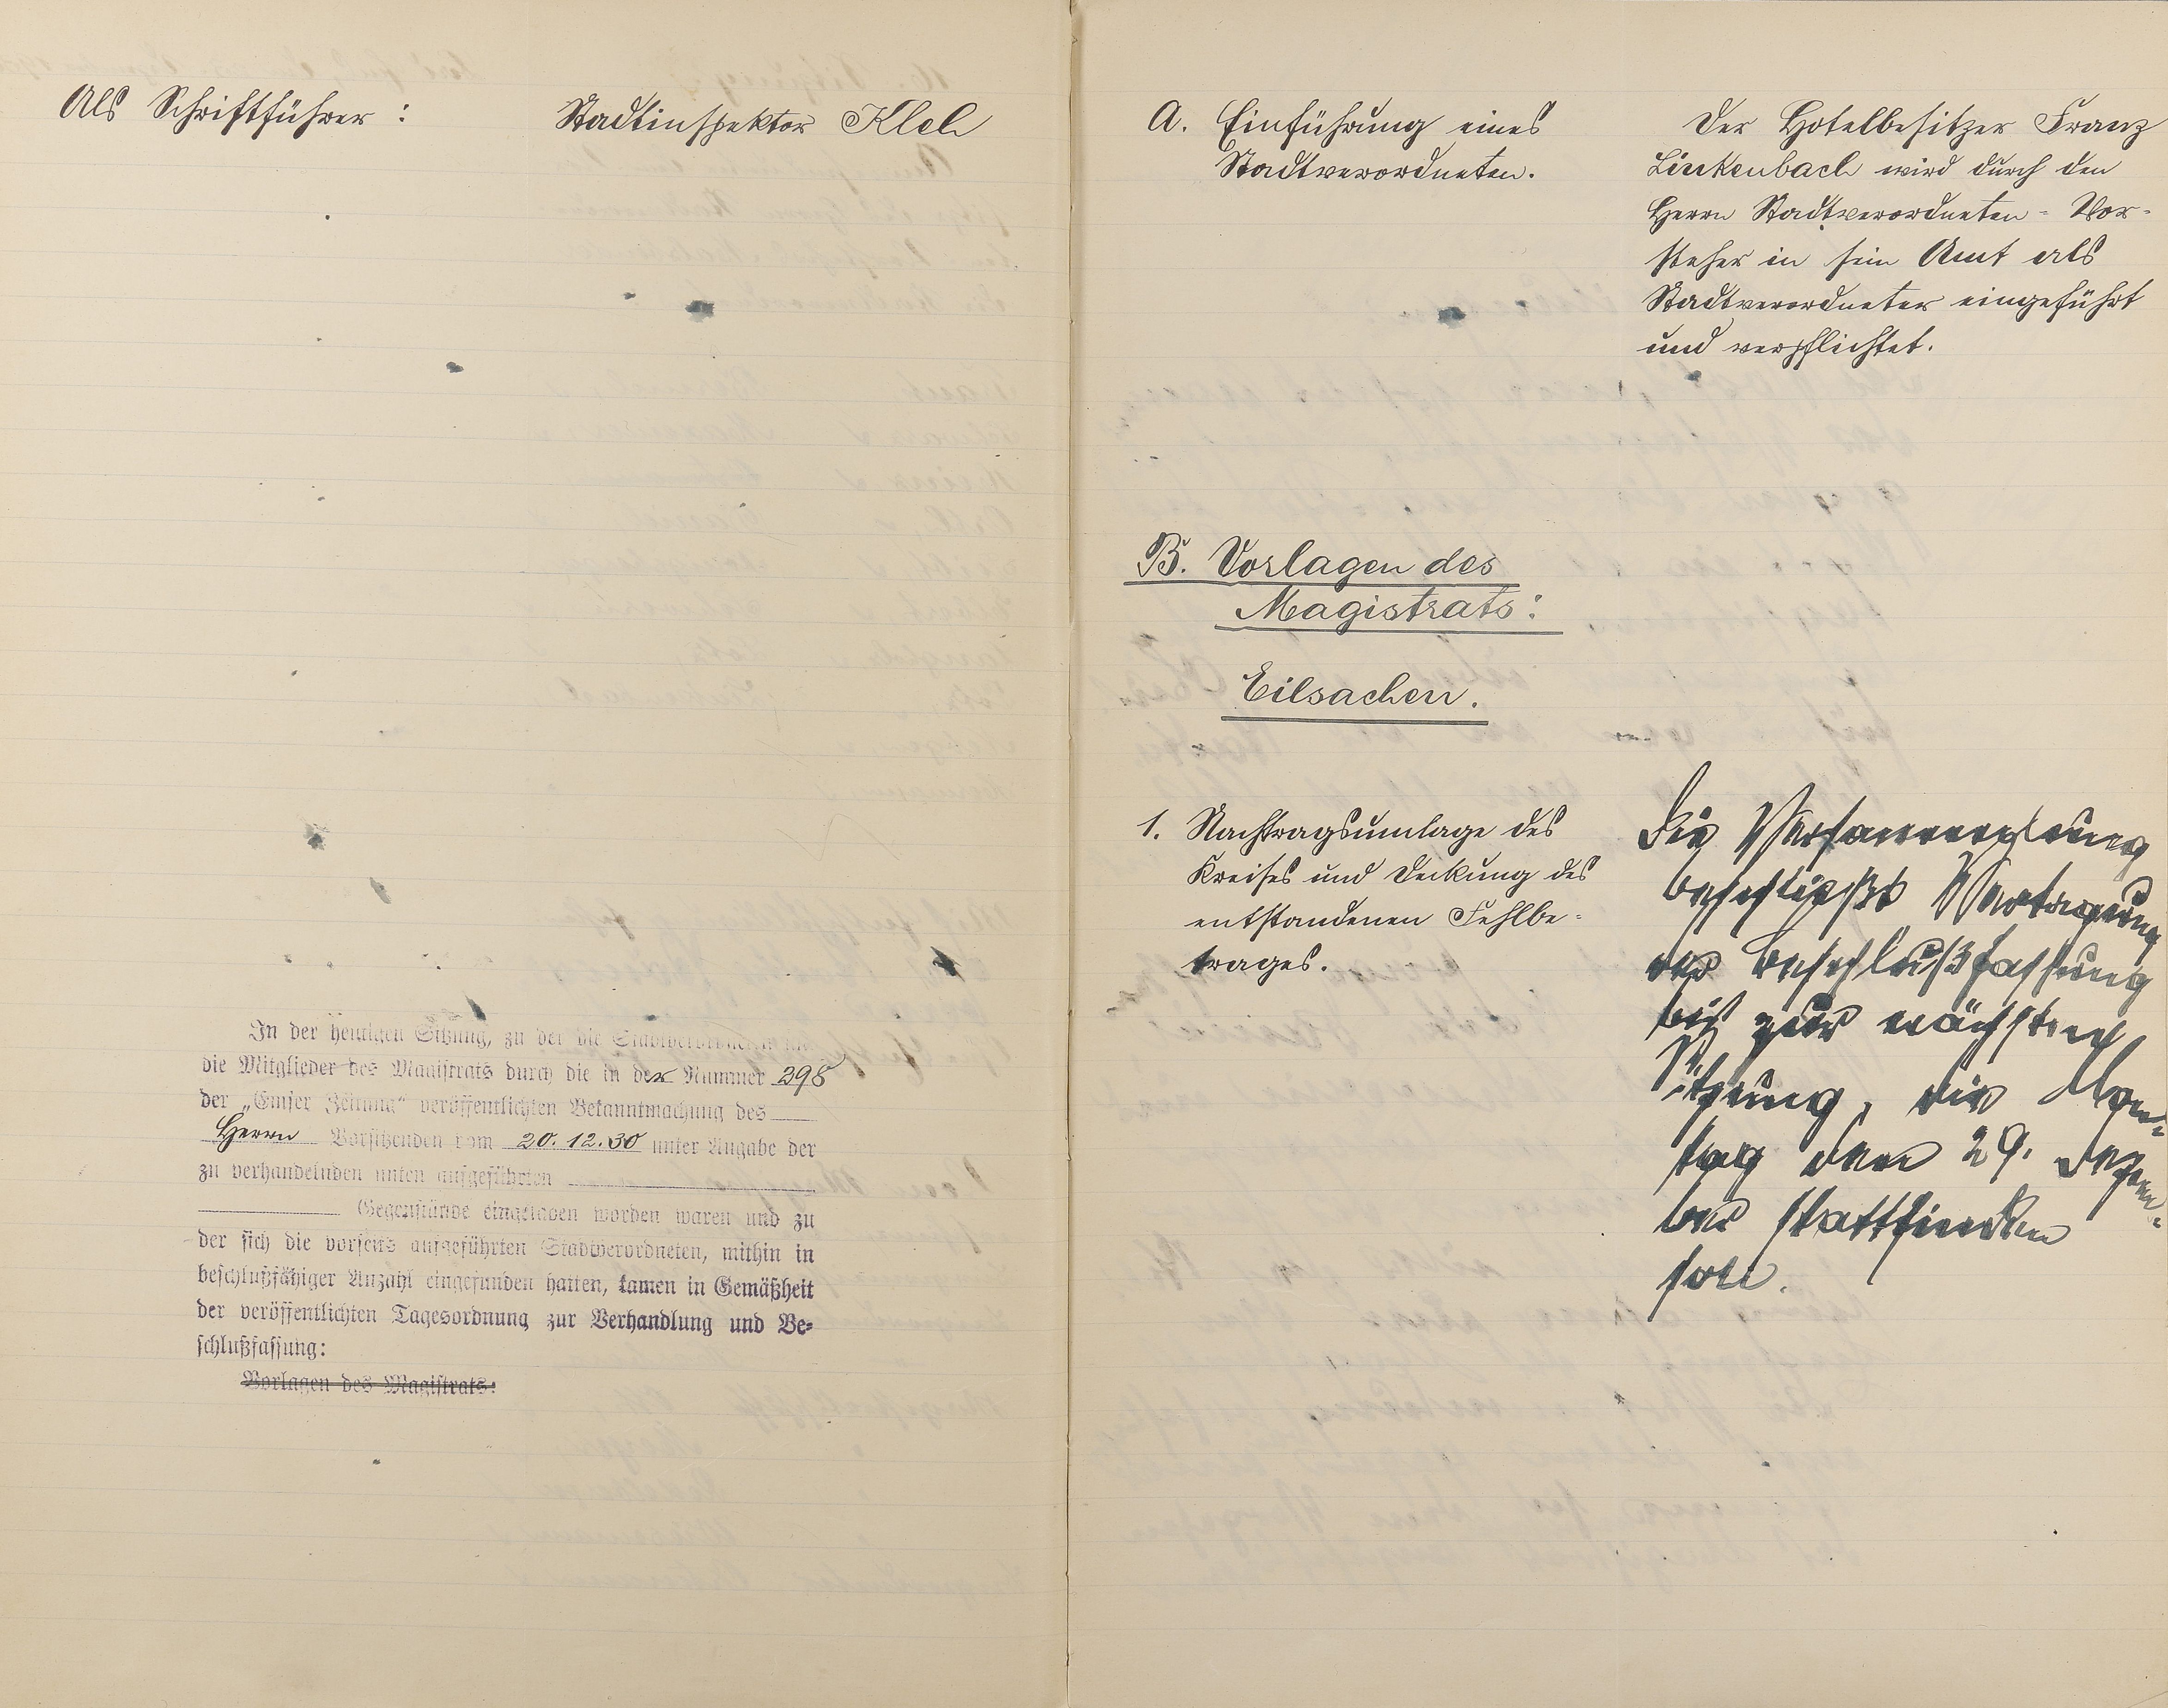 Als Schriftführer :
Stadtinspektor Kleh
In der heutigen Sitzung, zu der die Stadtverordneten und
die Mitglieder des Magistrats durch die in der Nummer 298
der „Emser Zeitung“ veröffentlichten Bekanntmachung des
Herrn Vorsitzenden vom 20.12.30 unter Angabe der
zu verhandelnden unten aufgeführten
Gegenstände eingeladen worden waren und zu
der sich die vorseits aufgeführten Stadtverordneten, mithin in
beschlußfähiger Anzahl eingefunden hatten, kamen in Gemäßheit
der veröffentlichten Tagesordnung zur Verhandlung und Be-
schlußfassung:
Vorlagen des Magistrats:
A. Einführung eines
Stadtverordneten.
Der Hotelbesitzer Franz
Linkenbach wird durch den
Herrn Stadtverordneten-Vor-
steher in sein Amt als
Stadtverordneter eingeführt
und verpflichtet.
B. Vorlagen des
Magistrats:
Eilsachen.
1. Nachtragsumlage des
Kreises und Deckung des
entstandenen Fehlbe-
trages.
Die Versammlung
beschließt Vertagung
der Beschlußfassung
bis zur nächsten
Sitzung, die Mon-
tag den 29. Dezem-
ber stattfinden
soll.